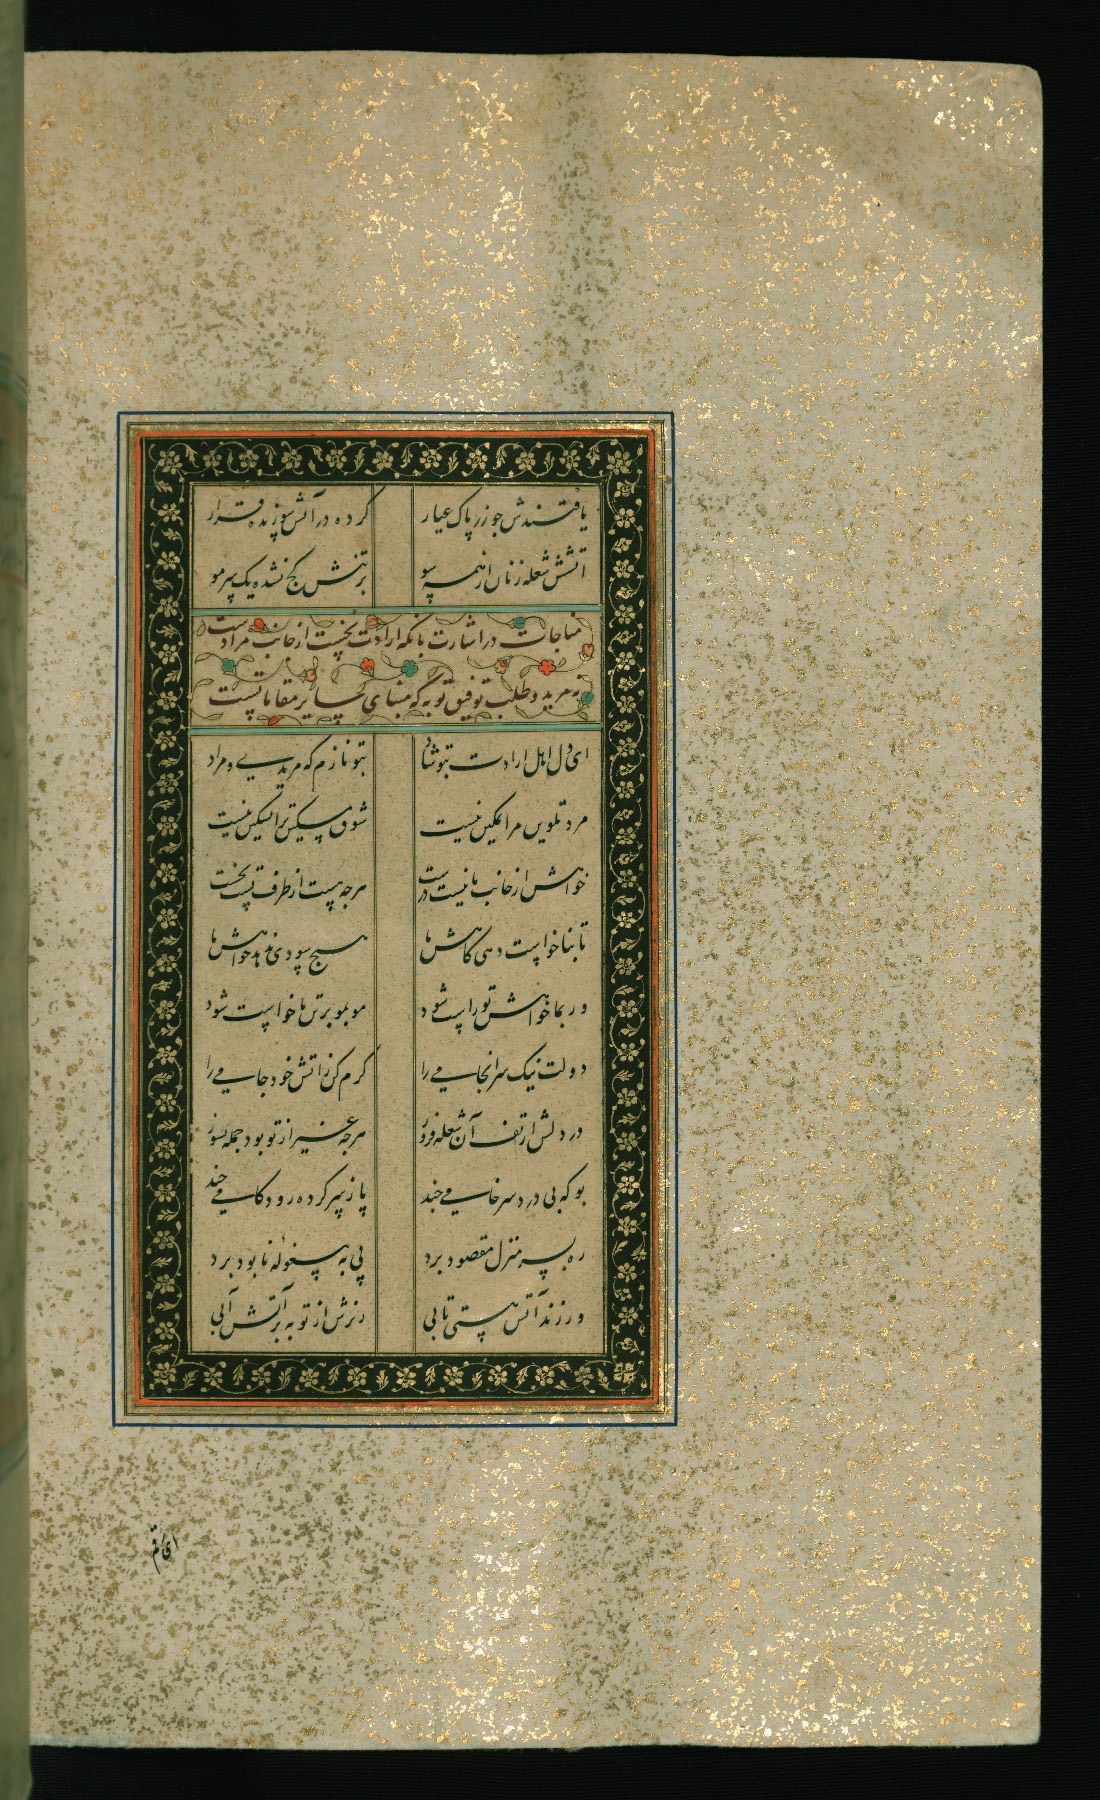 یافتندش چو زر پاک عیار کرده در آتش سوزنده قرار
آتشش شعله زنان از همه سو بر تنش کج نشده یک سر مو
مناجات در اشارت بانکه ارادت نخست از جانب مرادست
نه مرید و طلب توفیق توبه که مبنای سایر مقاماتست
ای دل اهل ارادت بتو شاد بتو نازم که مریدی و مراد
مرد تلوین مرا تمکین نیست شوق مسکین ترا تسکین نیست
خواهش از جانب ما نیست درست هرچه هست از طرف تست نخست
تا بناخواست دهی کاهش ما هیچ سودی ندهد خواهش ما
ور بما خواهش تو راست شود مو بمو بر تن ما خواست شود
دولت نیک سرانجامی را گرم کن زاتش خود جامی را
در دلش از تف آن شعله فروز هرچه غیر از تو بود جمله بسوز
بو که بی درد سر خامی چند پا ز سر کرده رود کامی چند
ره بسر منزل مقصود برد پی به بیغوله نابود برد
ور زند آتش هستی تابی ریزش از توبه بر آتش آبی
ای رقم